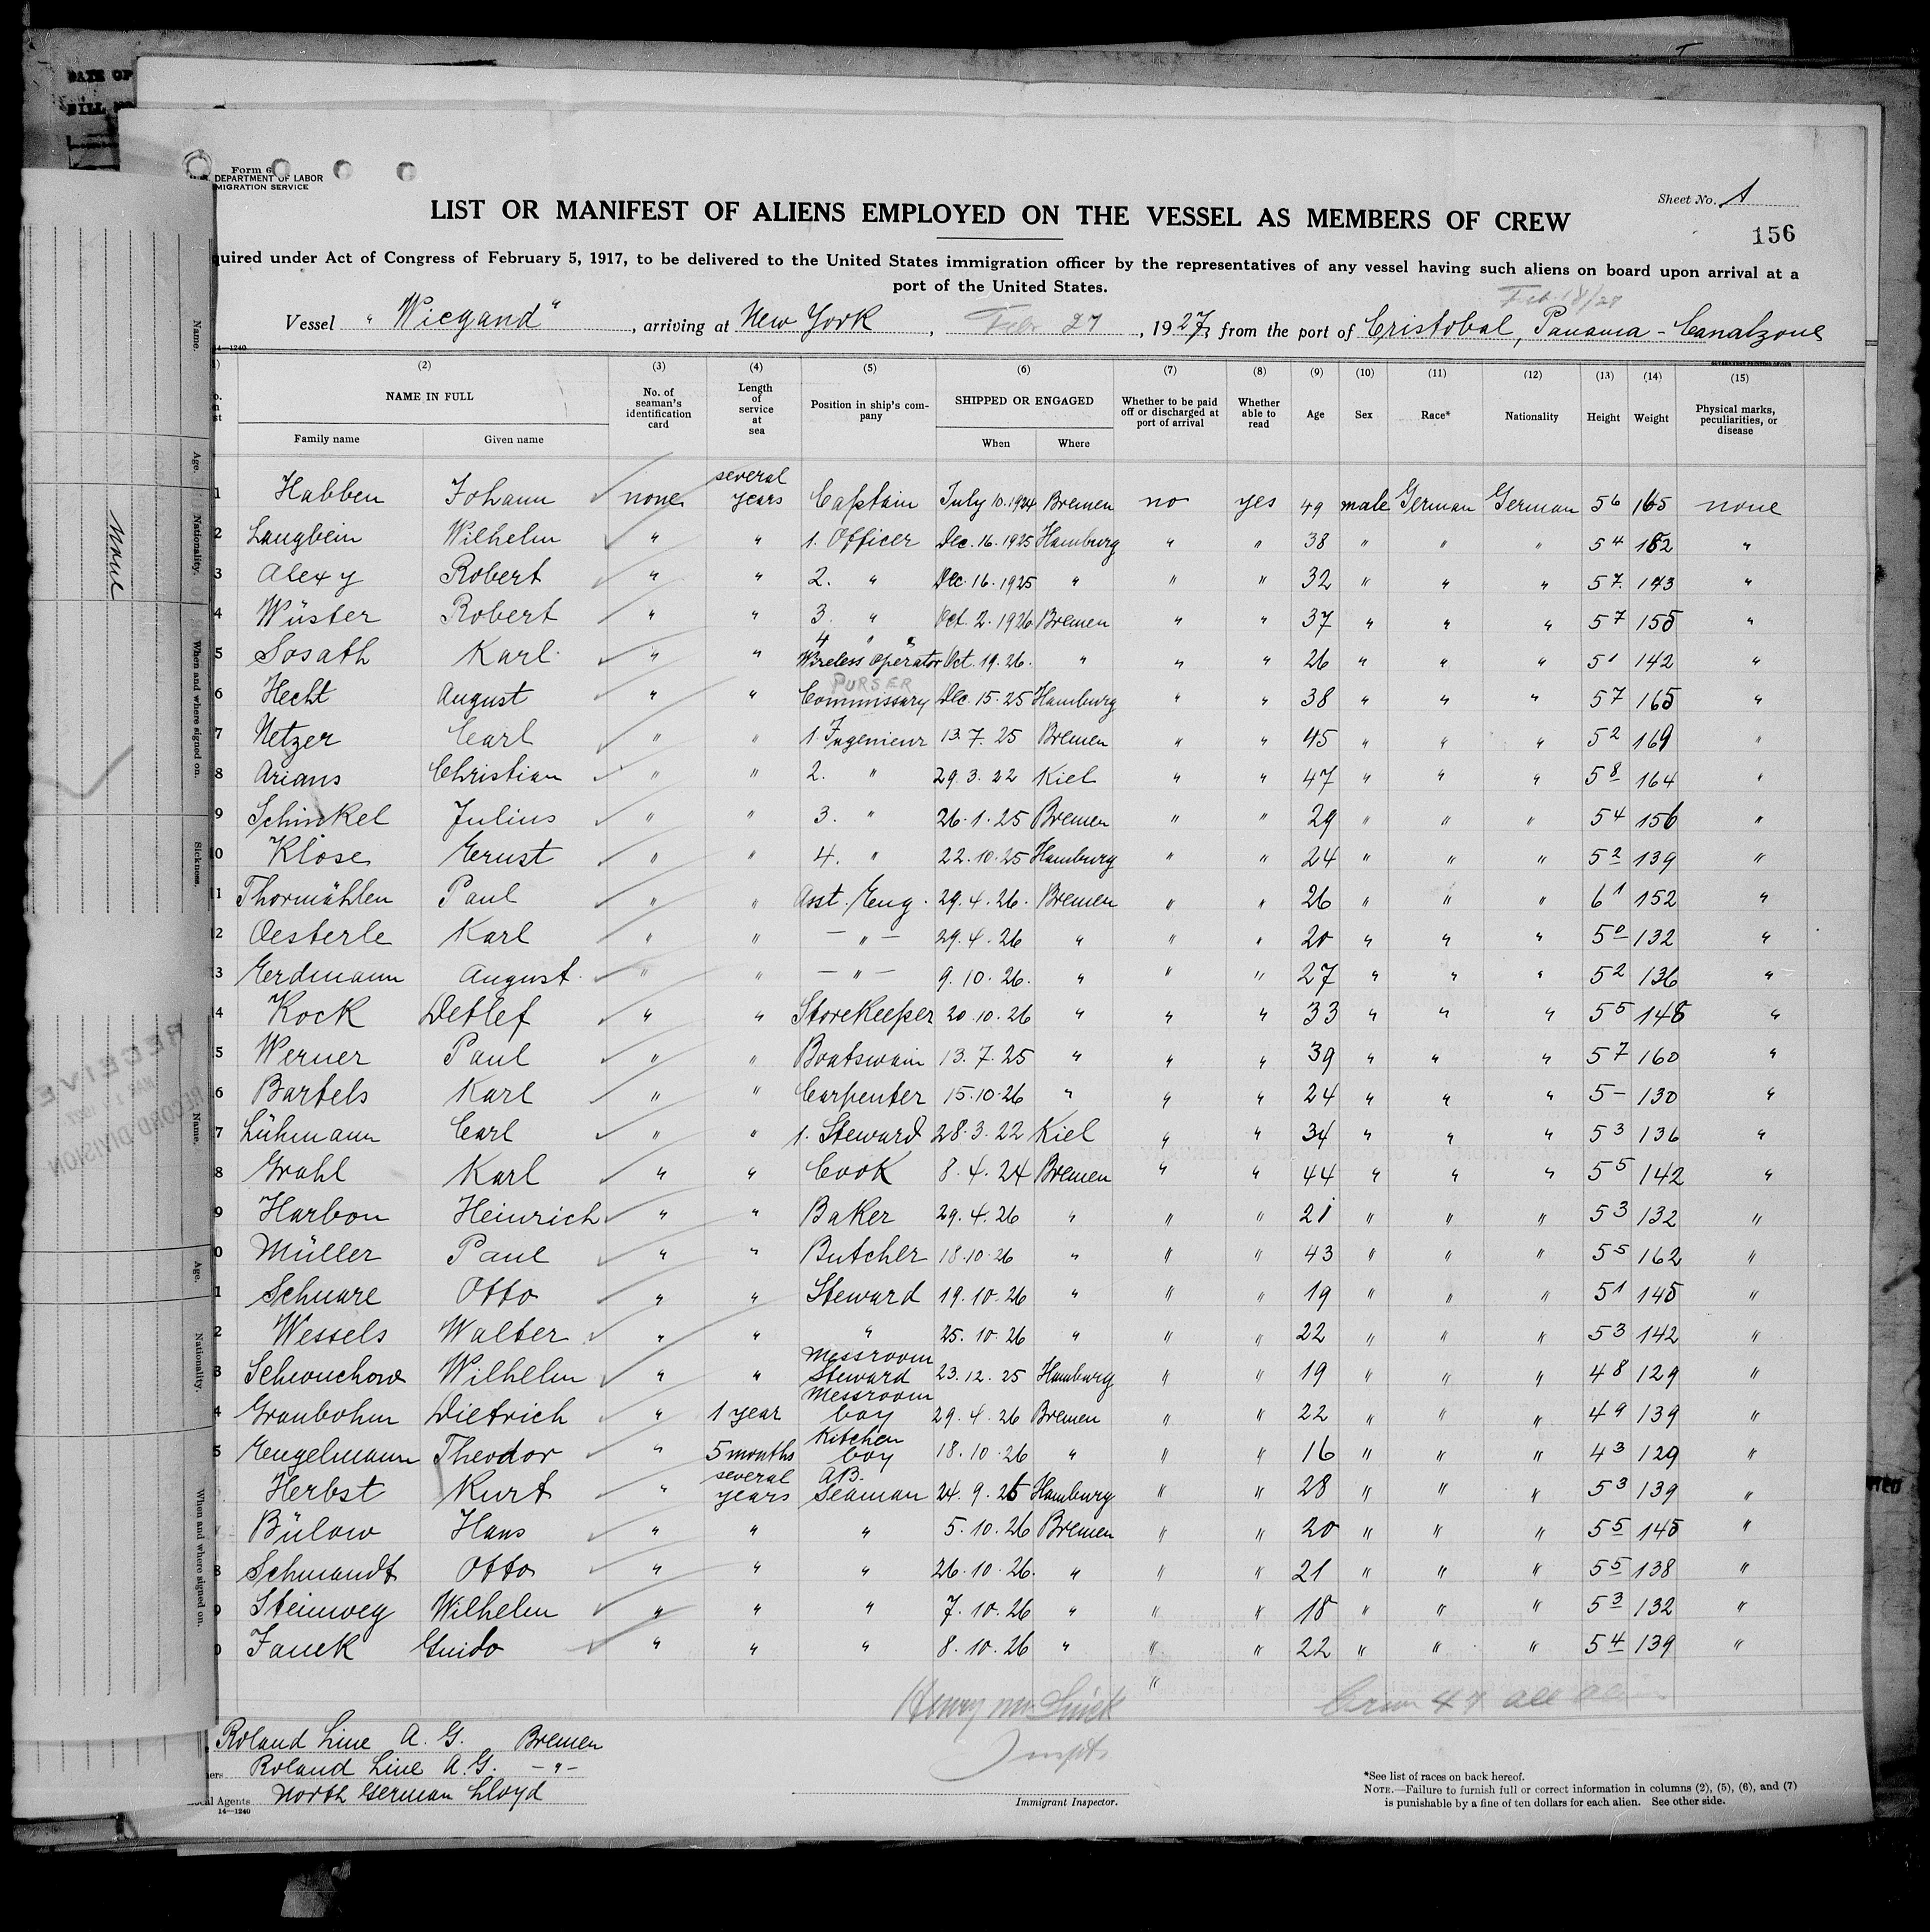 DATE OF
Form 6
DEPARTMENT OF LABOR
MIGRATION SERVICE
Sheet No. A
LIST OR MANIFEST OF ALIENS EMPLOYED ON THE VESSEL AS MEMBERS OF CREW
156
quired under Act of Congress of February 5, 1917, to be delivered to the United States immigration officer by the representatives of any vessel having such aliens on board upon arrival at a
port of the United States.
Vessel "Wiegand", arriving at New York, Febr 27, 1927, from the port of Cristobal, Panama - Canalzone
14—1240
(2) (3) (4) (5) (6) (7) (8) (9) (10) (11) (12) (13) (14) (15)
NAME IN FULL
Family name Given name
No. of seaman's identification card
Length of service at sea
Position in ship's company
SHIPPED OR ENGAGED
When Where
Whether to be paid off or discharged at port of arrival
Whether able to read
Age
Sex
Race*
Nationality
Height
Weight
Physical marks, peculiarities, or disease
1 Habben Johann none several years Captain July 10. 1924 Bremen no yes 49 male German German 5 6 165 none
2 Langbein Wilhelm " " 1. Officer Dec. 16. 1925 Hamburg " " 38 " " " 5 4 182 "
3 Alexy Robert " " 2. " Dec. 16. 1925 " " " 32 " " " 5 7 143 "
4 Wüster Robert " " 3. " Oct. 2. 1926 Bremen " " 37 " " " 5 7 155 "
5 Sosath Karl " " 4 " " Wireless Operator Oct. 19. 26. " " " 26 " " " 5 1 142 "
6 Hecht August " " PURSER Commissary Dec. 15. 25 Hamburg " " 38 " " " 5 7 165 "
7 Netzer Carl " " 1. Ingenieur 13. 7. 25 Bremen " " 45 " " " 5 2 169 "
8 Arians Christian " " 2. " 29. 3. 22 Kiel " " 47 " " " 5 8 164 "
9 Schinkel Julius " " 3. " 26. 1. 25 Bremen " " 29 " " " 5 4 156 "
0 Klose Ernst " " 4. " 22. 10. 25 Hamburg " " 24 " " " 5 2 139 "
1 Thormählen Paul " " Asst. Eng. 29. 4. 26. Bremen " " 26 " " " 6 1 152 "
2 Oesterle Karl " " — " — 29. 4. 26 " " " 20 " " " 5 0 132 "
3 Erdmann August " " — " — 9. 10. 26. " " " 27 " " " 5 2 136 "
4 Kock Detlef " " Storekeeper 20. 10. 26 " " " 33 " " " 5 5 148 "
5 Werner Paul " " Boatswain 13. 7. 25 " " " 39 " " " 5 7 160 "
6 Bartels Karl " " Carpenter 15. 10. 26 " " " 24 " " " 5 - 130 "
7 Lühmann Carl " " 1. Steward 28. 3. 22 Kiel " " 34 " " " 5 3 136 "
8 Grahl Karl " " Cook 8. 4. 24 Bremen " " 44 " " " 5 5 142 "
9 Harbon Heinrich " " Baker 29. 4. 26 " " " 21 " " " 5 3 132 "
0 Müller Paul " " Butcher 18. 10. 26 " " " 43 " " " 5 5 162 "
1 Schnare Otto " " Steward 19. 10. 26 " " " 19 " " " 5 1 145 "
2 Wessels Walter " " " 25. 10. 26 " " " 22 " " " 5 3 142 "
3 Schwuchow Wilhelm " " Messroom Steward 23. 12. 25 Hamburg " " 19 " " " 4 8 129 "
4 Granbohm Dietrich " 1 year Messroom boy 29. 4. 26 Bremen " " 22 " " " 4 9 139 "
5 Engelmann Theodor " 5 months Kitchen boy 18. 10. 26 " " " 16 " " " 4 3 129 "
Herbst Kurt " several years A.B. Seaman 24. 9. 26 Hamburg " " 28 " " " 5 3 139 "
Bülow Hans " " " 5. 10. 26 Bremen " " 20 " " " 5 5 145 "
8 Schmandt Otto " " " 26. 10. 26. " " " 21 " " " 5 5 138 "
9 Steinweg Wilhelm " " " 7. 10. 26 " " " 18 " " " 5 3 132 "
0 Janek Guido " " " 8. 10. 26 " " " 22 " " " 5 4 139 "
"
Roland Line A. G. Bremen
ners Roland Line A.G. - " -
Local Agents North German Lloyd
14—1240
Immigrant Inspector.
*See list of races on back hereof.
NOTE.—Failure to furnish full or correct information in columns (2), (5), (6), and (7)
is punishable by a fine of ten dollars for each alien. See other side.
Name.
Age.
Nationality.
When and where signed on.
Sickness.
Name.
Age.
Nationality
When and where signed on.
None
RECEIVE
RECORD DIVISION